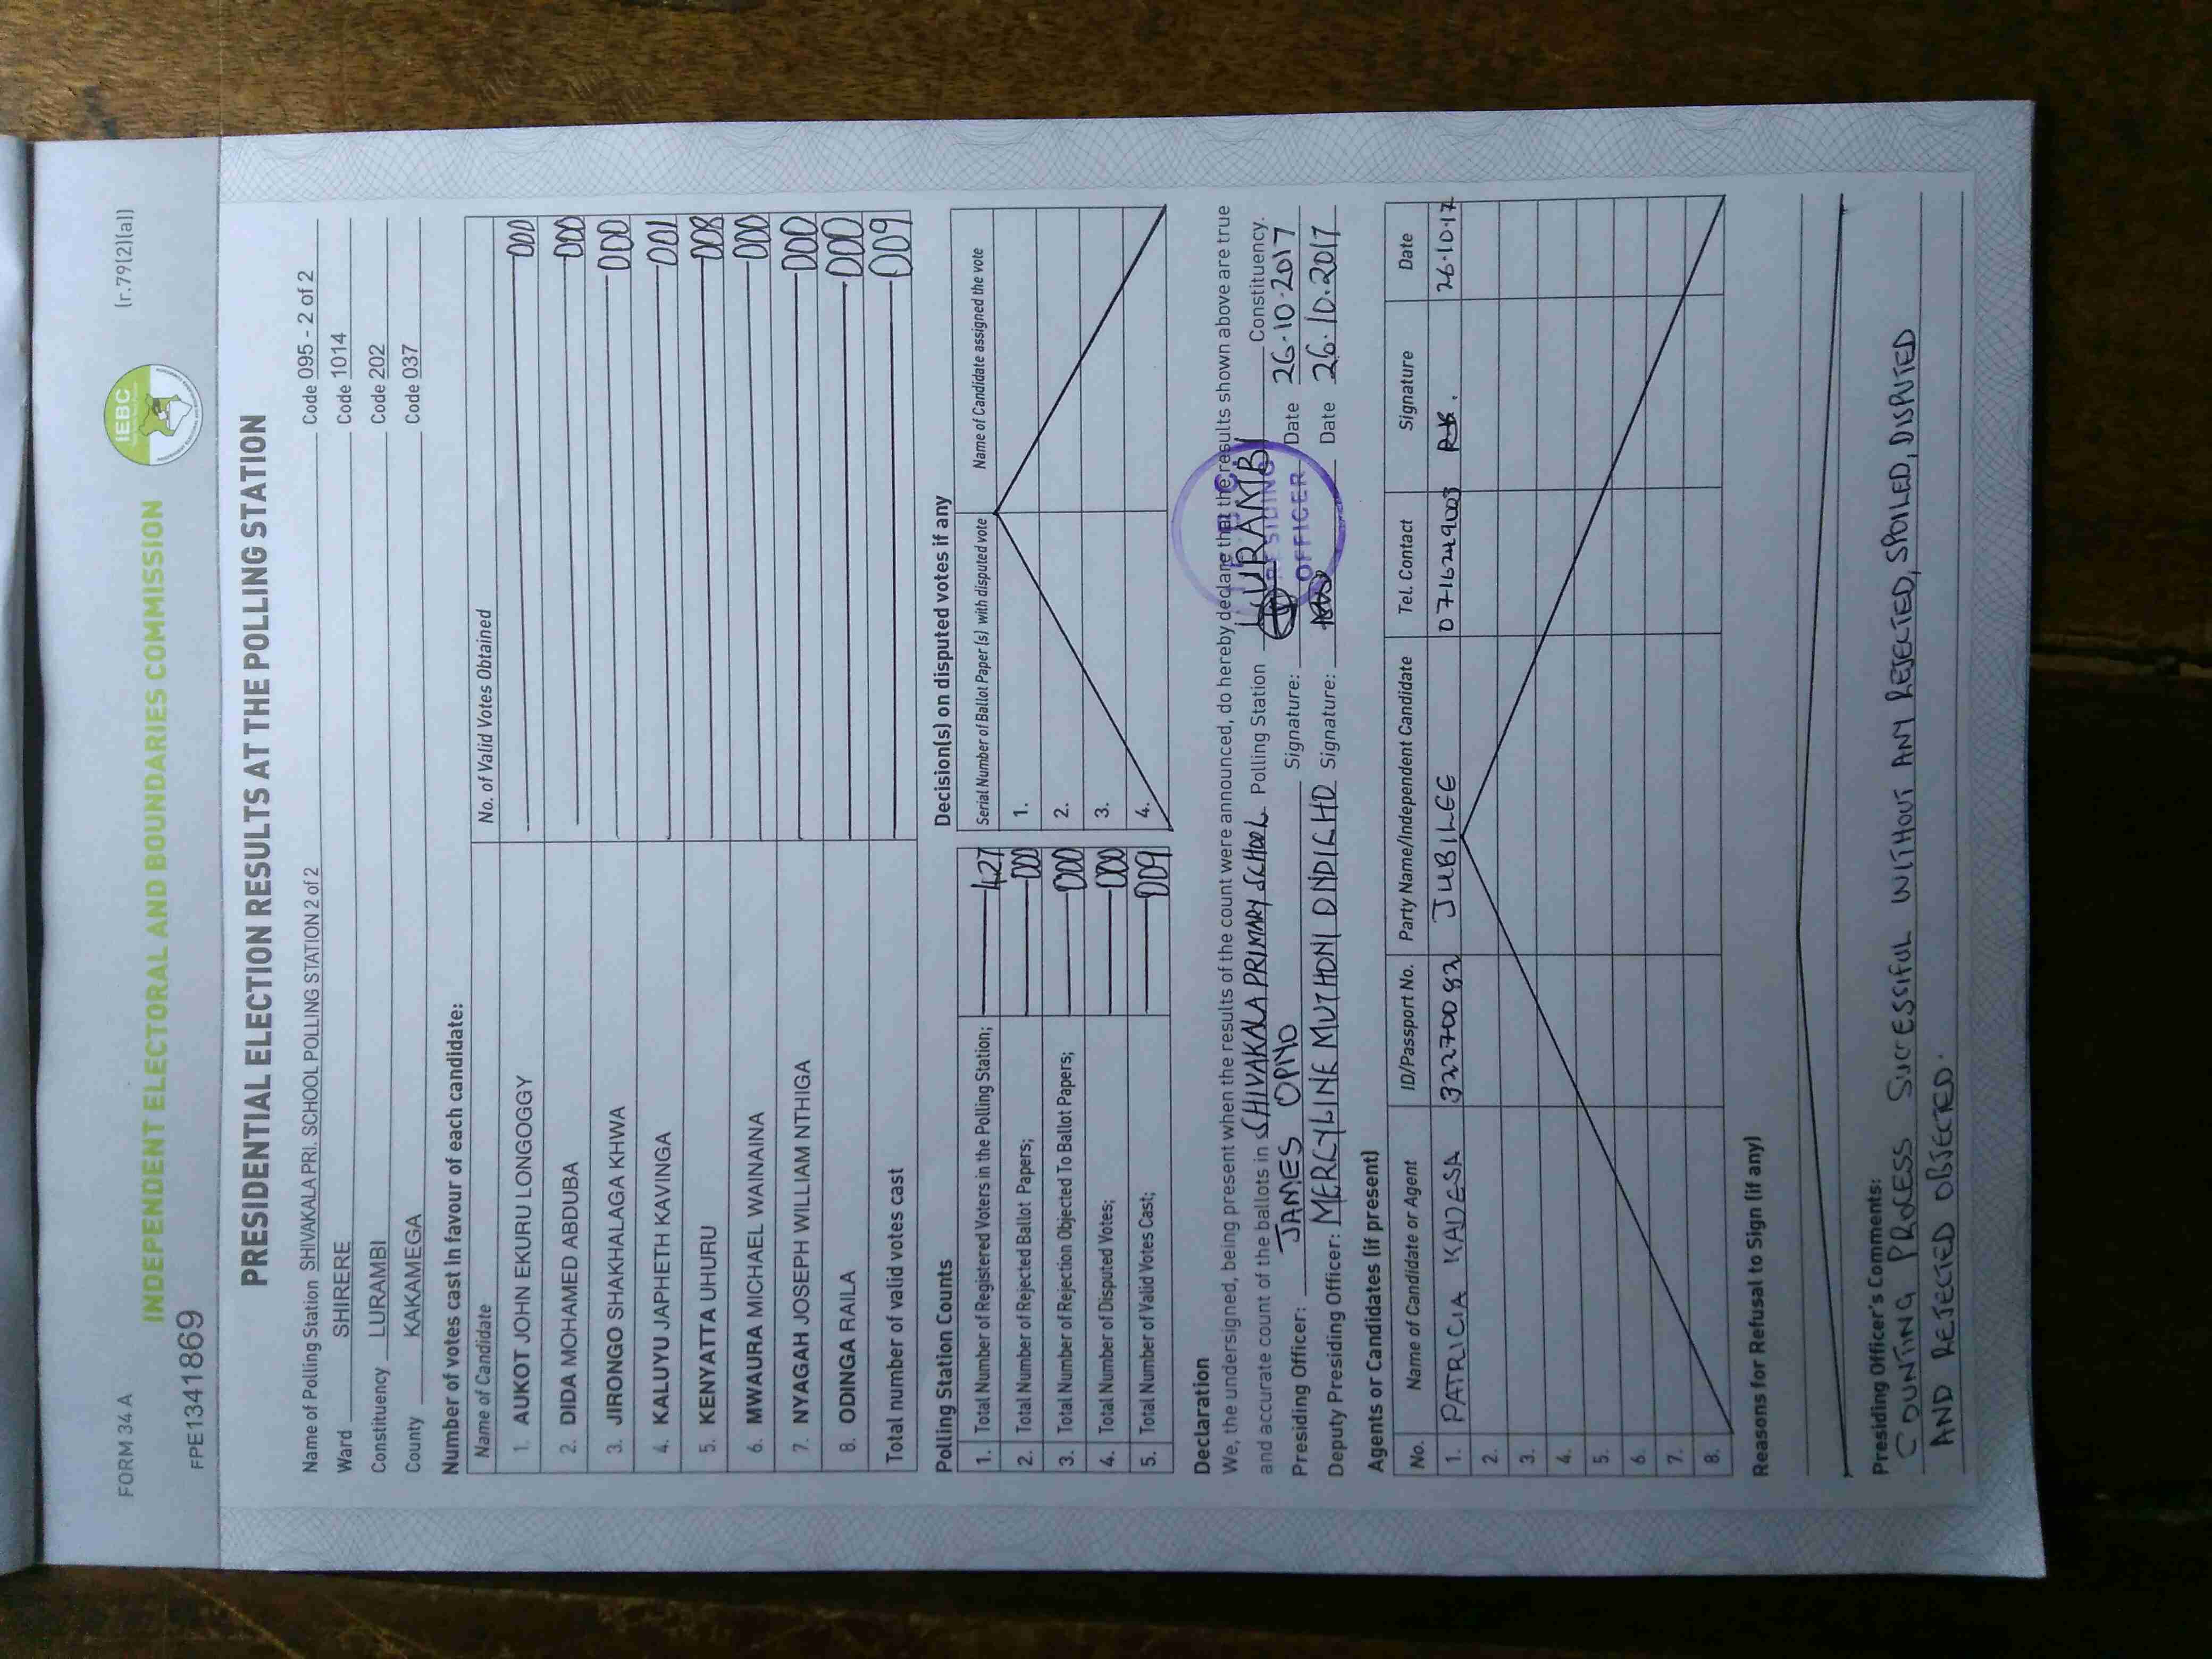 FORM 34 A
(r.79(2)(a))
IEBC
INDEPENDENT ELECTORAL AND BOUNDARIES COMMISSION
FPE1341869
PRESIDENTIAL ELECTION RESULTS AT THE POLLING STATION
Name of Polling Station SHIVAKALA PRI. SCHOOL POLLING STATION 2 of 2 Code 095 - 2 of 2
Ward SHIRERE Code 1014
Constituency LURAMBI Code 202
County KAKAMEGA Code 037
Number of votes cast in favour of each candidate:
Name of Candidate No. of Valid Votes Obtained
1. AUKOT JOHN EKURU LONGOGGY 000
2. DIDA MOHAMED ABDUBA 000
3. JIRONGO SHAKHALAGA KHWA 000
4. KALUYU JAPHETH KAVINGA 001
5. KENYATTA UHURU 008
6. MWAURA MICHAEL WAINAINA 000
7. NYAGAH JOSEPH WILLIAM NTHIGA 000
8. ODINGA RAILA 000
Total number of valid votes cast 009
Polling Station Counts
1. Total Number of Registered Voters in the Polling Station; 427
2. Total Number of Rejected Ballot Papers; 000
3. Total Number of Rejection Objected To Ballot Papers; 000
4. Total Number of Disputed Votes; 000
5. Total Number of Valid Votes Cast; 009
Decision(s) on disputed votes if any
Serial Number of Ballot Paper (s) with disputed vote Name of Candidate assigned the vote
1.
2.
3.
4.
Declaration
We, the undersigned, being present when the results of the count were announced, do hereby declare that the results shown above are true
and accurate count of the ballots in SHIVAKALA PRIMARY SCHOOL Polling Station LURAMBI Constituency.
Presiding Officer: JAMES OPIYO Signature: Date 26-10-2017
Deputy Presiding Officer: MERCYLINE MUTHONI ONDIGHO Signature: Date 26.10.2017
PRESIDING
OFFICER
Agents or Candidates (if present)
No. Name of Candidate or Agent ID/Passport No. Party Name/Independent Candidate Tel. Contact Signature Date
1. PATRICIA KADESA 32270092 JUBILEE 0716249003 26.10.17
2.
3.
4.
5.
6.
7.
8.
Reasons for Refusal to Sign (if any)
Presiding Officer's Comments:
COUNTING PROCESS SUCCESSFUL WITHOUT ANY REJECTED, SPOILED, DISPUTED
AND REJECTED OBJECTED.